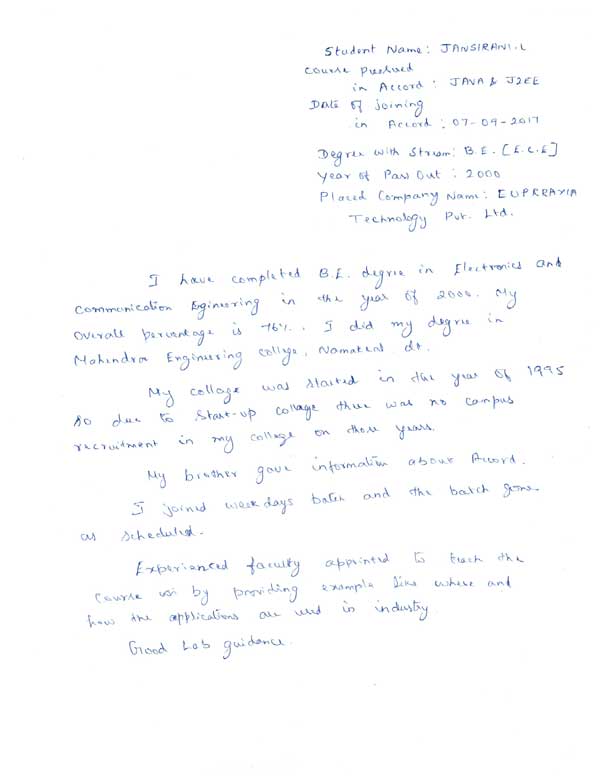 Student Name: JANSIRANI.L
Course pursued
in Accord : JAVA & J2EE
Date of joining
in Accord : 07-09-2017
Degree with Stream: B.E. [E.C.E]
Year of Pass Out : 2000
Placed Company Name: EUPRRAXIA
Technology Pvt. Ltd.
I have completed B.E. degree in Electronics and
Communication Egineering in the year of 2000. My
overall percentage is 76%. I did my degree in
Mahindra Engineering college, Namakkal dt.
My collage was started in the year of 1995
so due to Start-up collage there was no campus
recruitment in my college on those years.
My brother gave information about Accord.
I joined weekdays batch and the batch gone
as scheduled.
Experienced faculty appointed to teach the
course by providing example like where and
how the applications are used in industry.
Good Lab guidance.